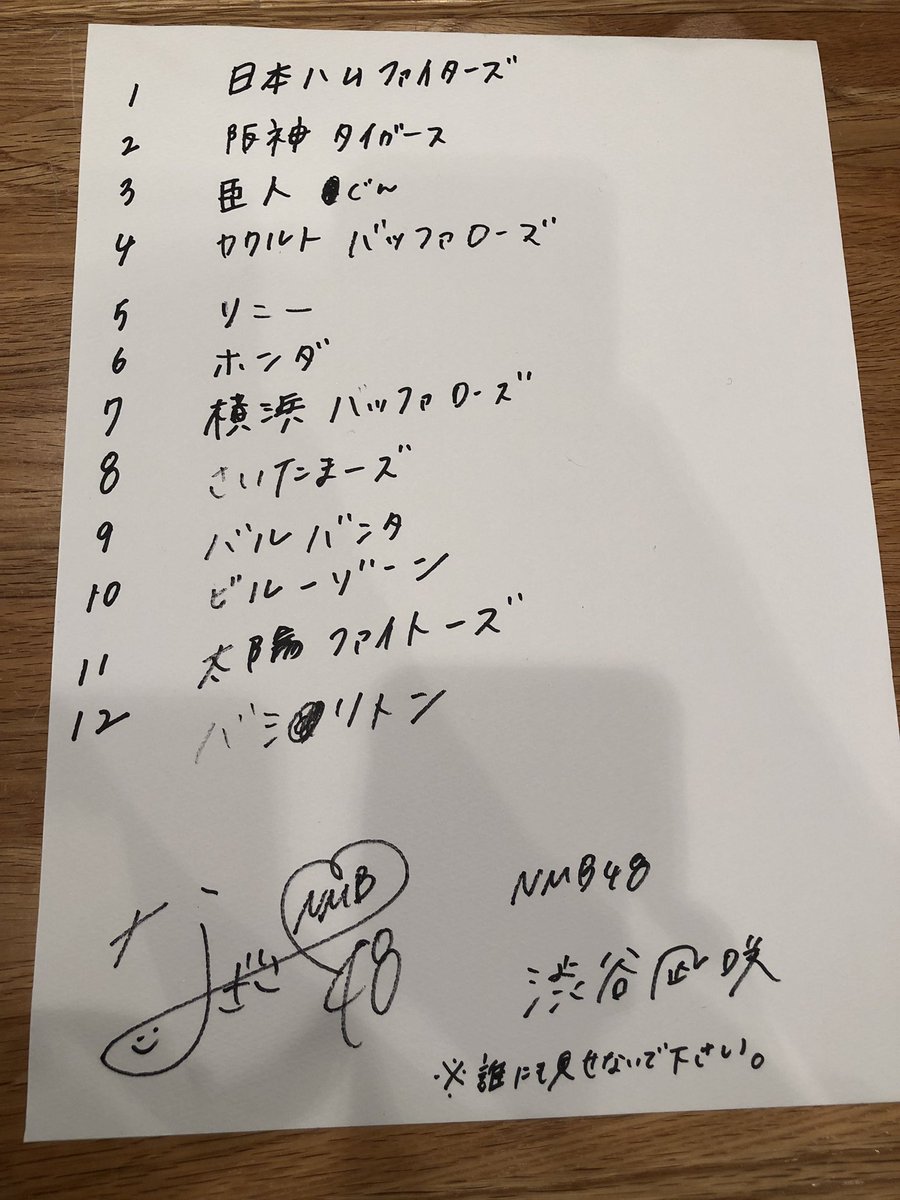 1 日本ハムファイターズ
2 阪神 タイガース
3 臣人 ぐん
4 ヤクルト バッファローズ
5 ソニー
6 ホンダ
7 横浜 バッファローズ
8 さいたまーズ
9 バルバンタ
10 ビルーゾーン
11 太陽 ファイトーズ
12 バミリトン
なぎさ NMB48
NMB48
渋谷凪咲
※誰にも見せないで下さい。